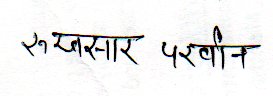 रुख्सार परवीन